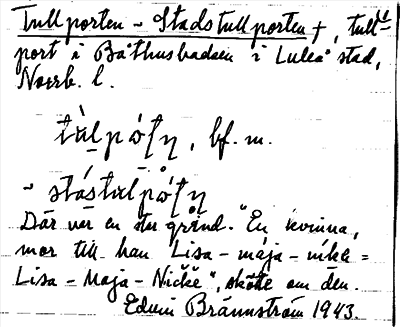 Tullporten ~ Stadstullporten +, tull-
port i Båthusbadsen i Luleå stad,
Norrb. l.
bf. m.
Där var en stor grind. "En kvinna,
mor till han Lisa - maja - nikke =
Lisa - Maja - Nicke", skötte om den.
Edvin Brännström 1943.